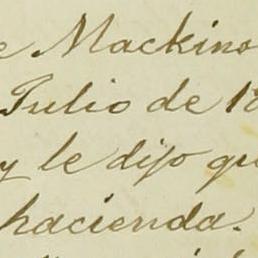 e Mackino
Julio de 18
y le dijo qu
hacienda.